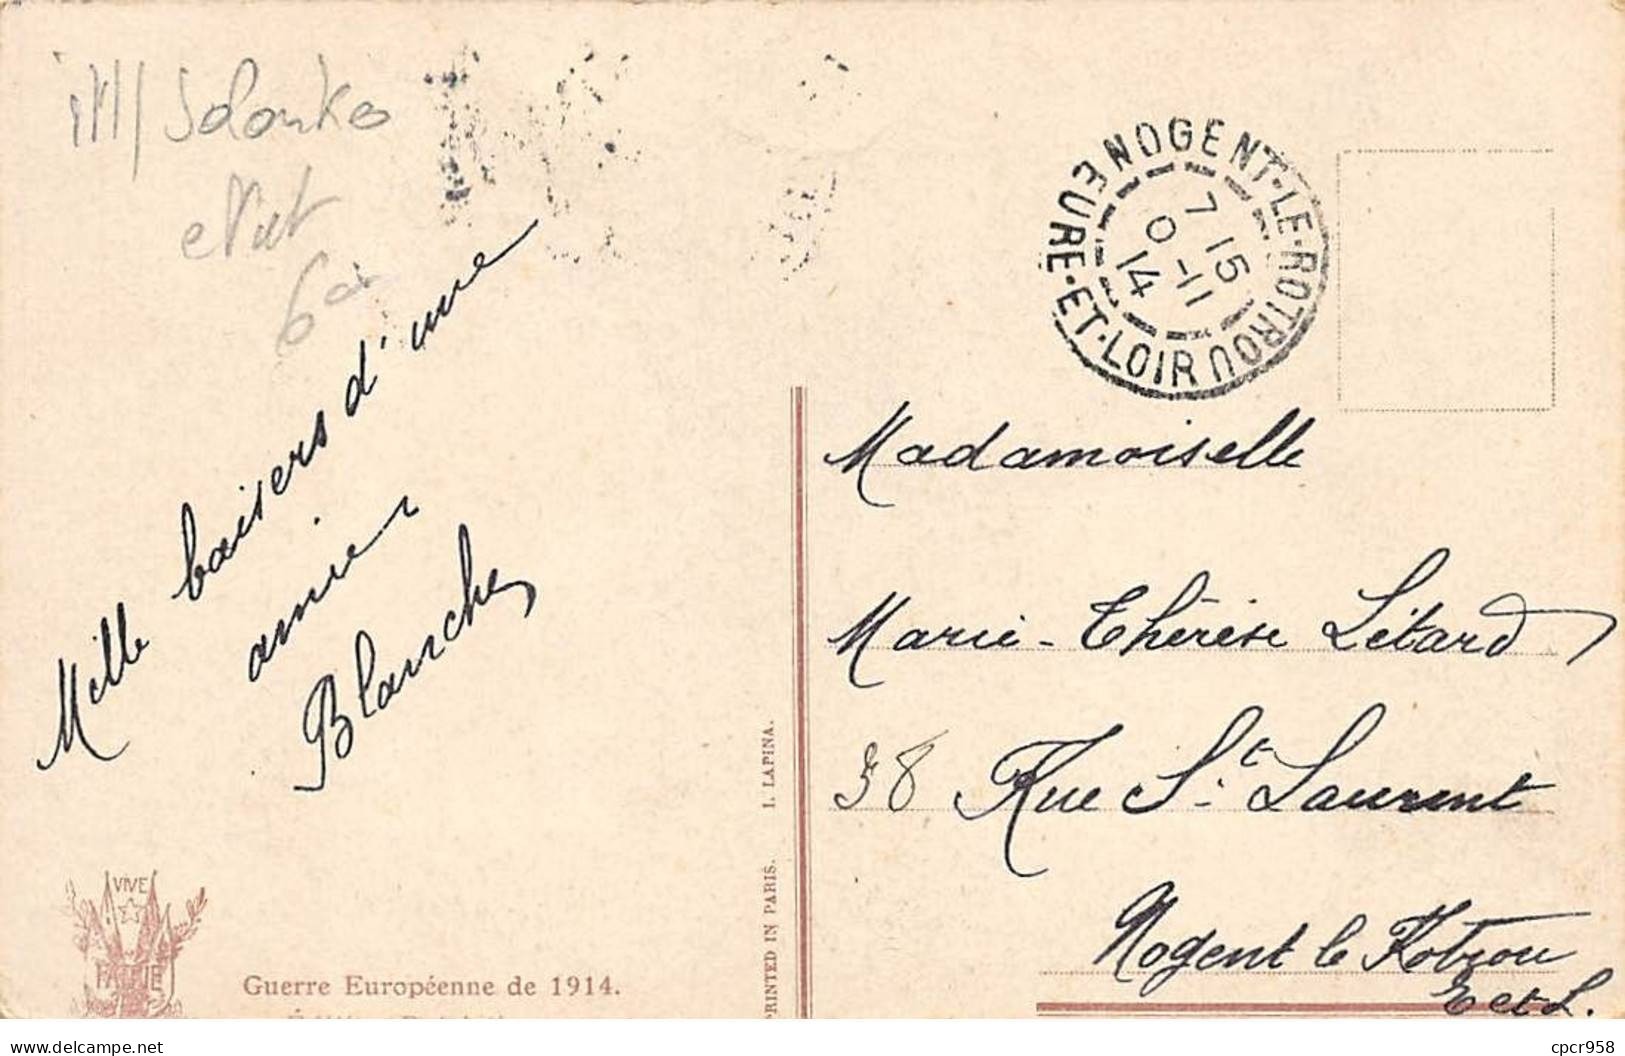 ill/ Solomko
6
Mille baisers d'une
amie
Blanche
VIVE
PATRIE
Guerre Européenne de 1914.
PRINTED IN PARIS. I. LAPINA.
NOGENT-LE-ROTROU
EURE-ET-LOIR
7 15
0 -11
14
Madamoiselle
Marie-Thérèse Létard
38 Rue St. Laurent
Nogent le Rotrou
E et L.
delcampe.net
cpcr958